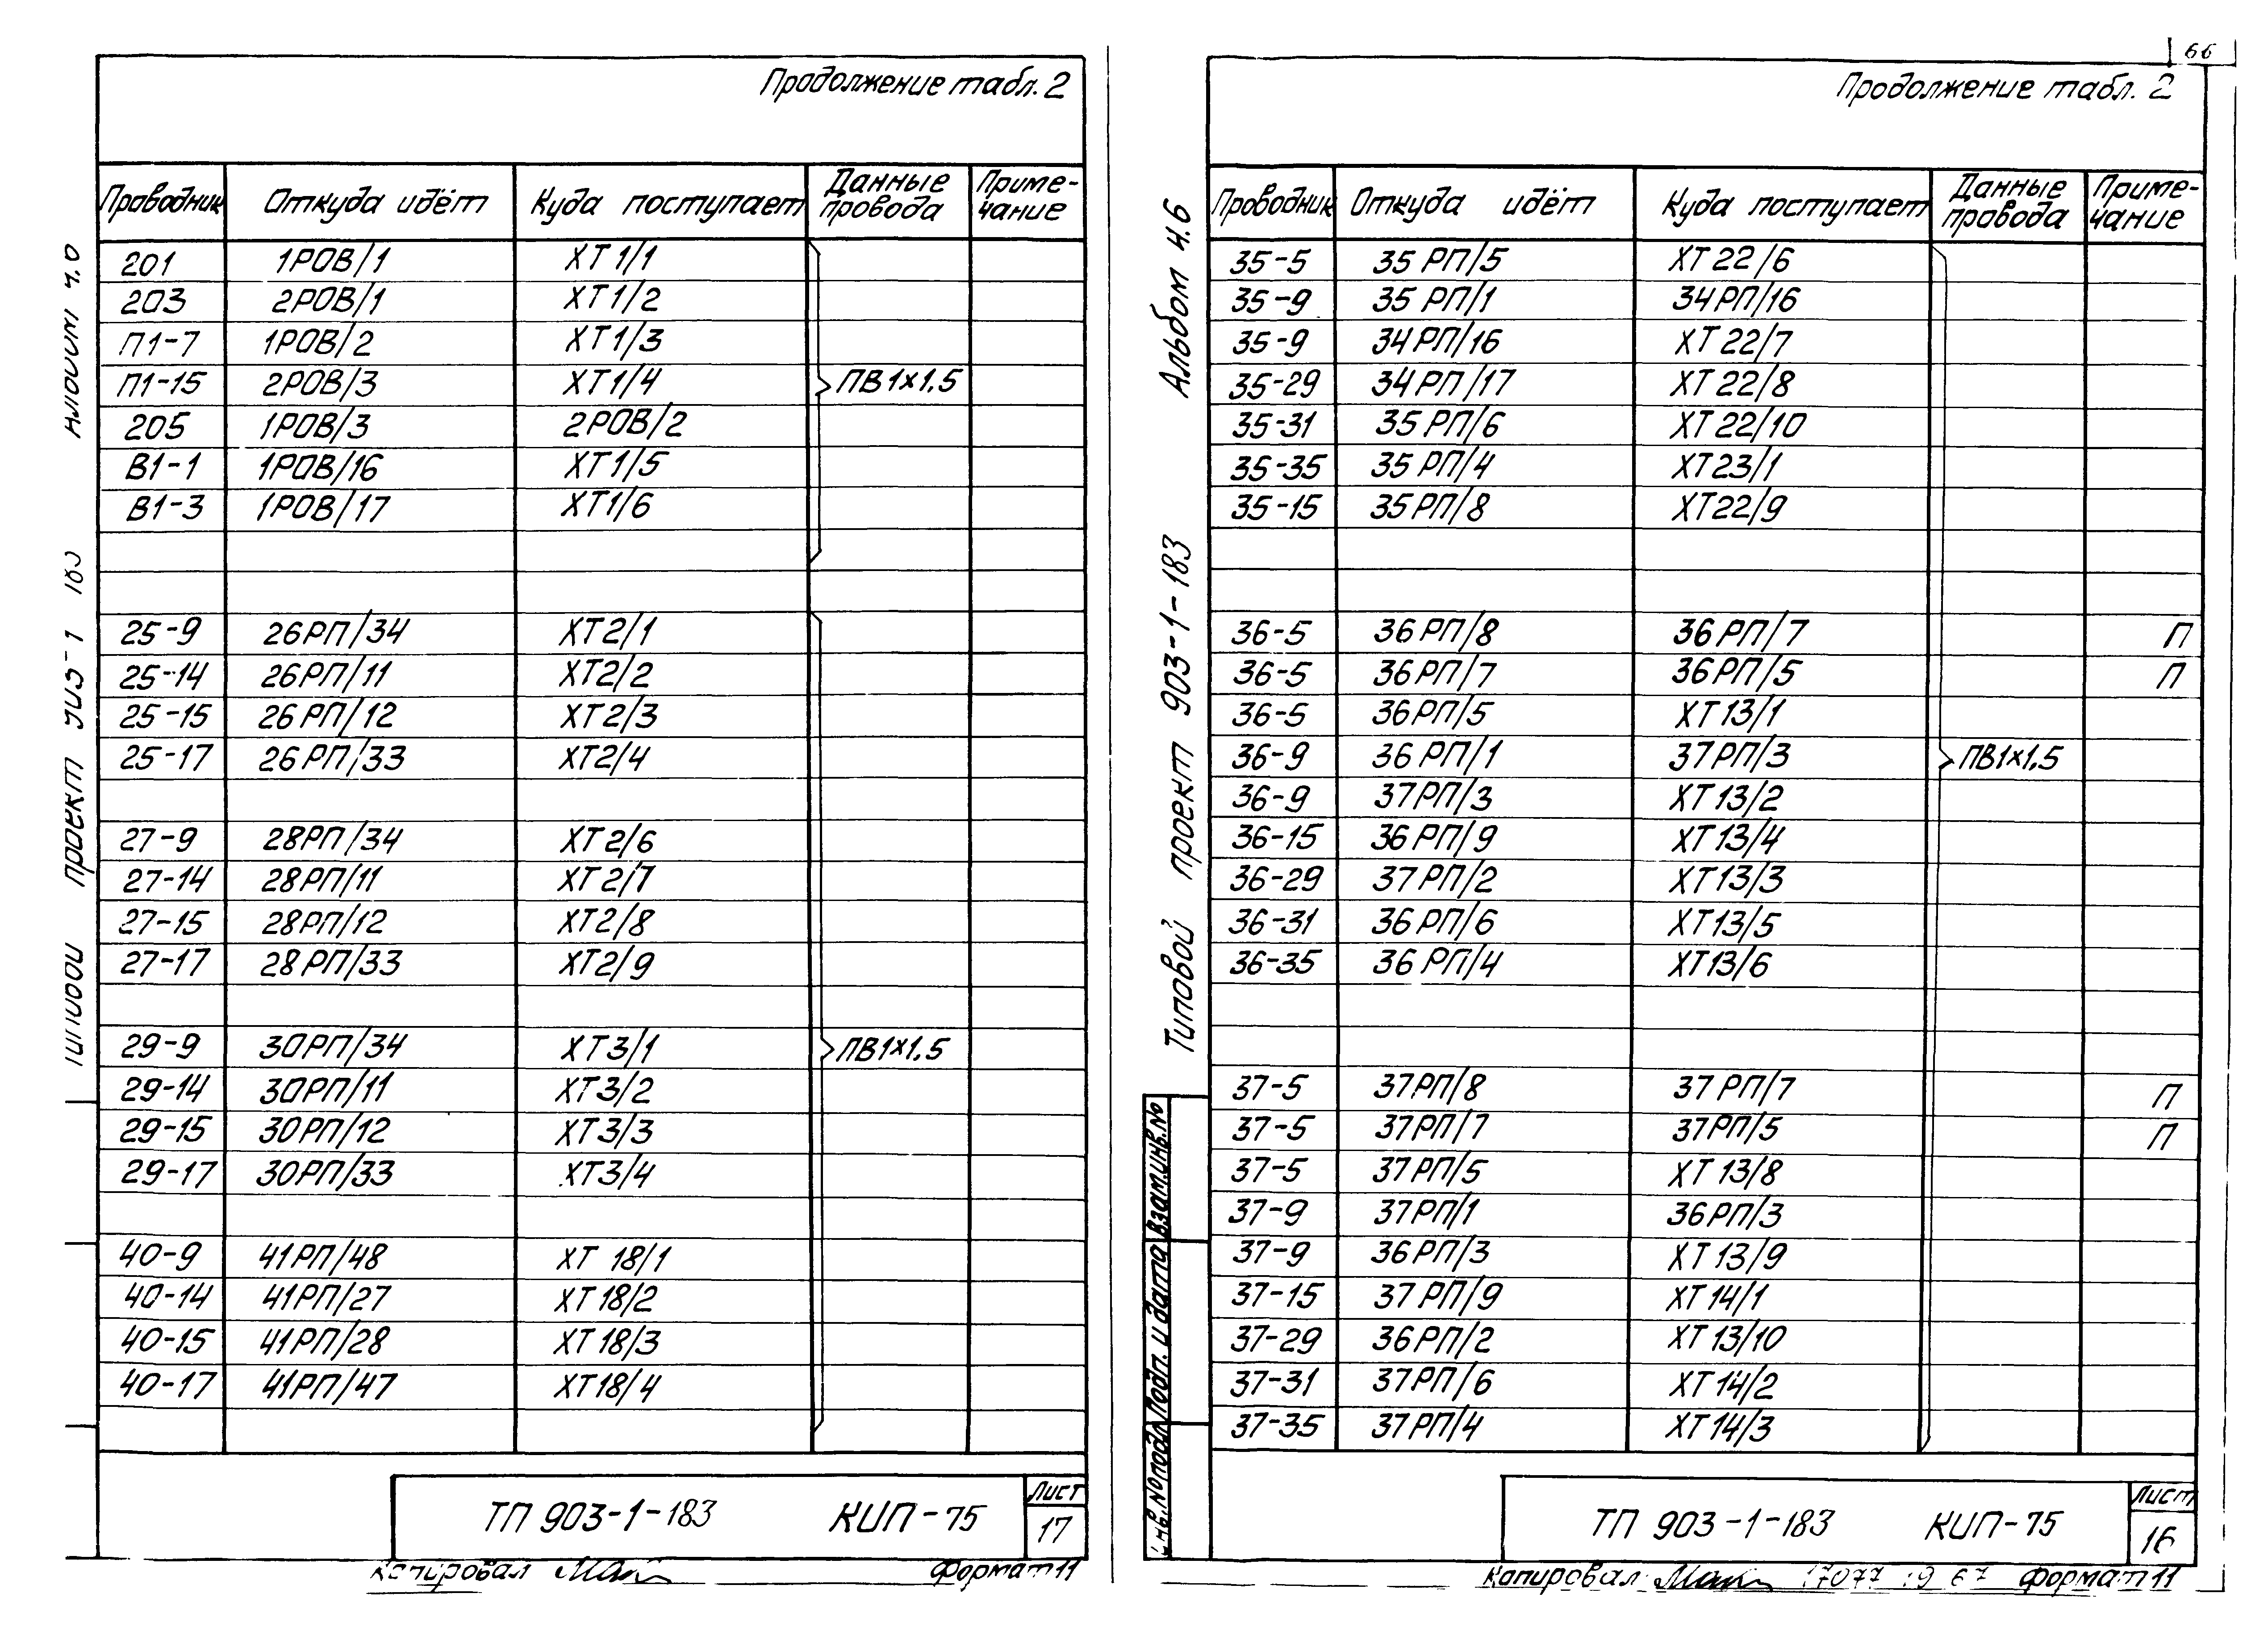 66
Продолжение табл. 2
Проводник Откуда идёт Куда поступает Данные провода Приме-чание
201 1РОВ/1 ХТ1/1
203 2РОВ/1 ХТ1/2
П1-7 1РОВ/2 ХТ1/3
П1-15 2РОВ/3 ХТ1/4 ПВ1х1,5
205 1РОВ/3 2РОВ/2
В1-1 1РОВ/16 ХТ1/5
В1-3 1РОВ/17 ХТ1/6
25-9 26РП/34 ХТ2/1
25-14 26РП/11 ХТ2/2
25-15 26РП/12 ХТ2/3
25-17 26РП/33 ХТ2/4
27-9 28РП/34 ХТ2/6
27-14 28РП/11 ХТ2/7
27-15 28РП/12 ХТ2/8
27-17 28РП/33 ХТ2/9
29-9 30РП/34 ХТ3/1 ПВ1х1,5
29-14 30РП/11 ХТ3/2
29-15 30РП/12 ХТ3/3
29-17 30РП/33 ХТ3/4
40-9 41РП/48 ХТ 18/1
40-14 41РП/27 ХТ18/2
40-15 41РП/28 ХТ18/3
40-17 41РП/47 ХТ18/4
ТП 903-1-183 КИП-75
Лист
17
Копировал Формат 11
проект
Продолжение табл. 2
Проводник Откуда идёт Куда поступает Данные провода Приме-чание
35-5 35 РП/5 ХТ22/6
35-9 35 РП/1 34РП/16
35-9 34РП/16 ХТ22/7
35-29 34РП/17 ХТ22/8
35-31 35 РП/6 ХТ22/10
35-35 35 РП/4 ХТ23/1
35-15 35РП/8 ХТ22/9
36-5 36РП/8 36РП/7 П
36-5 36РП/7 36РП/5 П
36-5 36РП/5 ХТ13/1
36-9 36РП/1 37РП/3 ПВ1х1,5
36-9 37РП/3 ХТ13/2
36-15 36РП/9 ХТ13/4
36-29 37РП/2 ХТ13/3
36-31 36РП/6 ХТ13/5
36-35 36РП/4 ХТ13/6
37-5 37РП/8 37РП/7 П
37-5 37РП/7 37РП/5 П
37-5 37РП/5 ХТ13/8
37-9 37РП/1 36РП/3
37-9 36РП/3 ХТ13/9
37-15 37РП/9 ХТ14/1
37-29 36РП/2 ХТ13/10
37-31 37РП/6 ХТ14/2
37-35 37РП/4 ХТ14/3
ТП 903-1-183 КИП-75
Лист
16
Копировал Формат 11
Типовой проект 903-1-183 Альбом 4.6
Инв.№подл. Подп. и дата Взам.инв.№